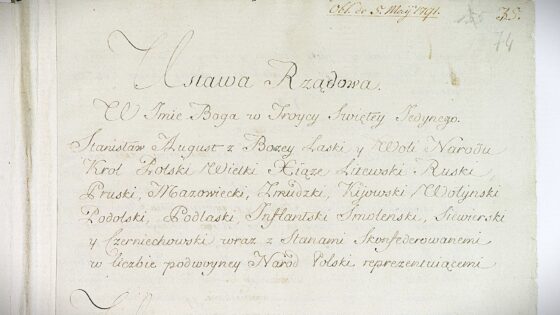 Obl. de 5. Maij 1791.
75.
74
Ustawa Rządowa.
W Imie Boga w Troycy Swiętey Jedynego.
Stanisław August z Bozey Łaski y Woli Narodu
Krol Polski Wielki Xiąze Litewski Ruski,
Pruski, Mazowiecki, Zmudzki, Kijowski Wołynski
Podolski, Podlaski, Inflantski Smolenski, Siewierski
y Czerniechowski wraz z Stanami Skonfederowanemi
w liczbie podwoyney Naród Polski reprezentuiącemi